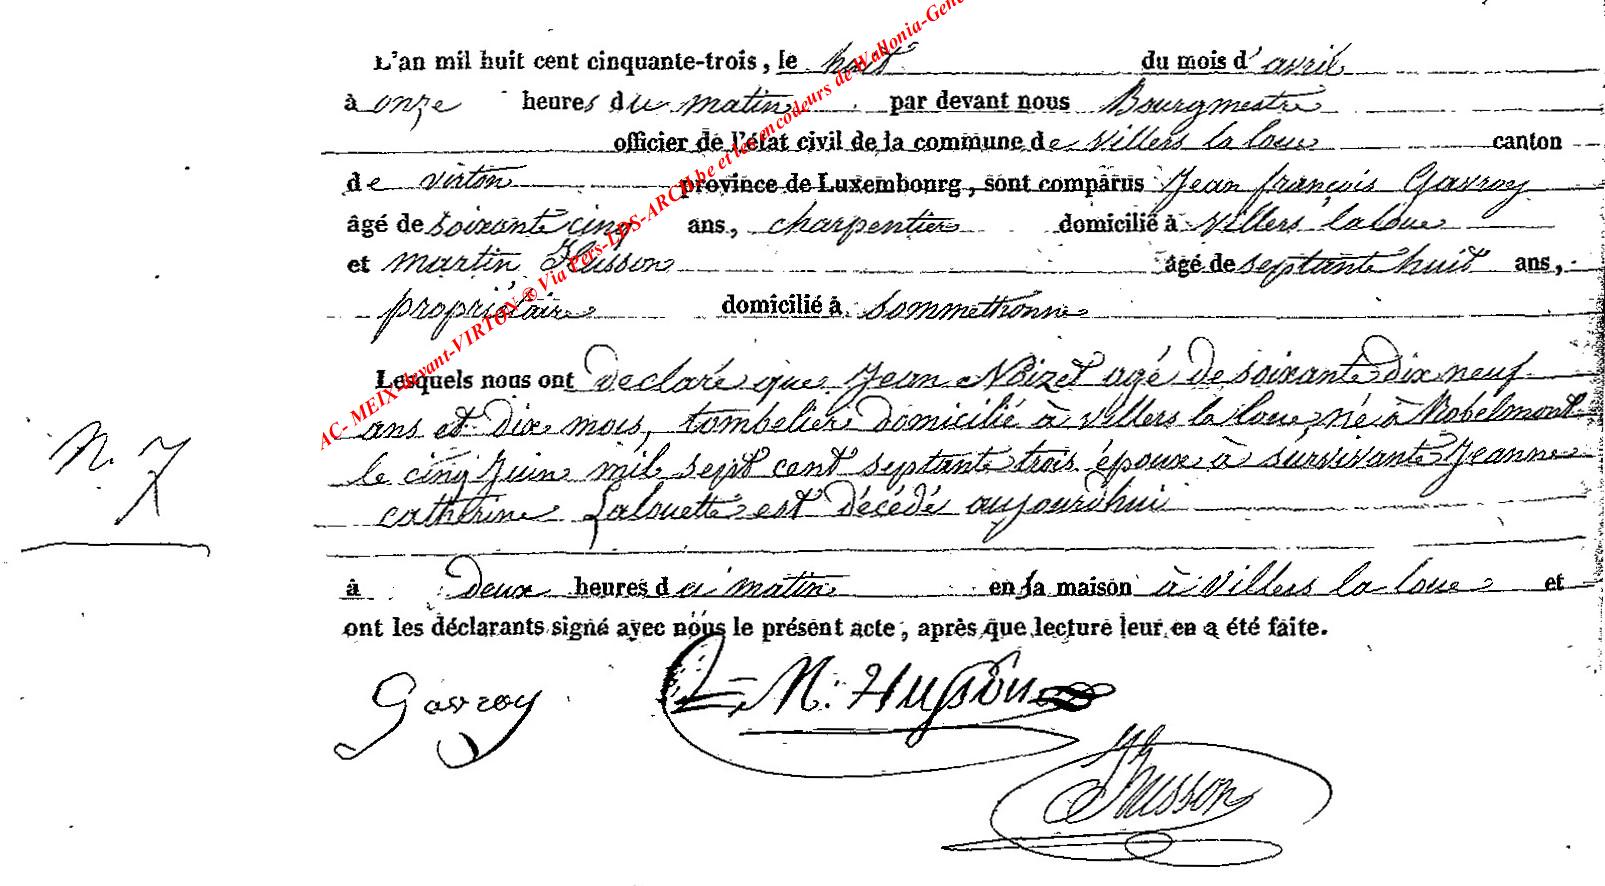 L'an mil huit cent cinquante-trois, le huit du mois d'avril
à onze heures du matin par devant nous Bourgmestre
officier de l'état civil de la commune de Villers la loue canton
de virton province de Luxembourg, sont comparus Jean françois Gavroy
âgé de soixante cinq ans, charpentier domicilié à villers la loue
et martin Husson âgé de septante huit ans,
propriétaire domicilié à Sommethonne
Lesquels nous ont declaré que Jean Noizet agé de soixante dix neuf
ans et dix mois, tombelier domicilié à villers la loue, né à Robelmont
le cinq Juin mil sept cent septante trois époux à survivante Jeanne
catherine Lalouette est décédé aujourd'hui
N. 7
à deux heures du matin en sa maison à Villers la loue et
ont les déclarants signé avec nous le présent acte, après que lecture leur en a été faite.
Gavroy M. Husson
Husson
AC- MEIX-devant-VIRTON ® Via Pers-LDS-ARCH.be et les encodeurs de Wallonia-Gene